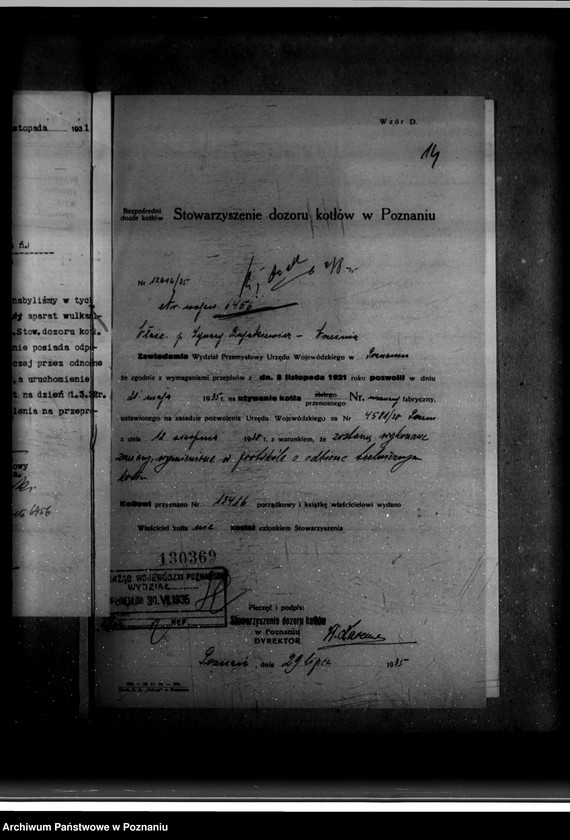 stopada 1931
nabyliśmy w tych
aparat wulkani-
Stow.dozoru kot.
nie posiada odpo-
czej przez odnośne
a uruchomienie
t na dzień 1.3.32r.
lenia na przepro-
6456
Wzór D.
14
Bezpośredni
dozór kotłów
Stowarzyszenie dozoru kotłów w Poznaniu
Nr 12616/35
Nr. wojew. 6456
Właśc. p. Ignacy
Zawiadamia Wydział Przemysłowy Urzędu Wojewódzkiego w Poznaniu
że zgodnie z wymaganiami przepisów z dn. 8 listopada 1921 roku pozwolił w dniu
21 maja 1935 r. na używanie kotła stałego
przenośnego Nr. nieznany fabryczny,
ustawionego na zasadzie pozwolenia Urzędu Wojewódzkiego za Nr 4581/30
z dnia 12 sierpnia 1930 r. z warunkiem, że zostaną wykonane
zmiany, wymienione w protokóle o odbiorze technicznym
kotła
Kotłowi przyznano Nr 13416 porządkowy i książkę właścicielowi wydano
Właściciel kotła nie został członkiem Stowarzyszenia
130369
URZĄD WOJEWÓDZKI POZNAŃSKI
WYDZIAŁ
30.VII.1935
REF.
Pieczęć i podpis:
Stowarzyszenie dozoru kotłów
w Poznaniu
DYREKTOR
Poznań, dnia 29 lipca 1935
Archiwum Państwowe w Poznaniu